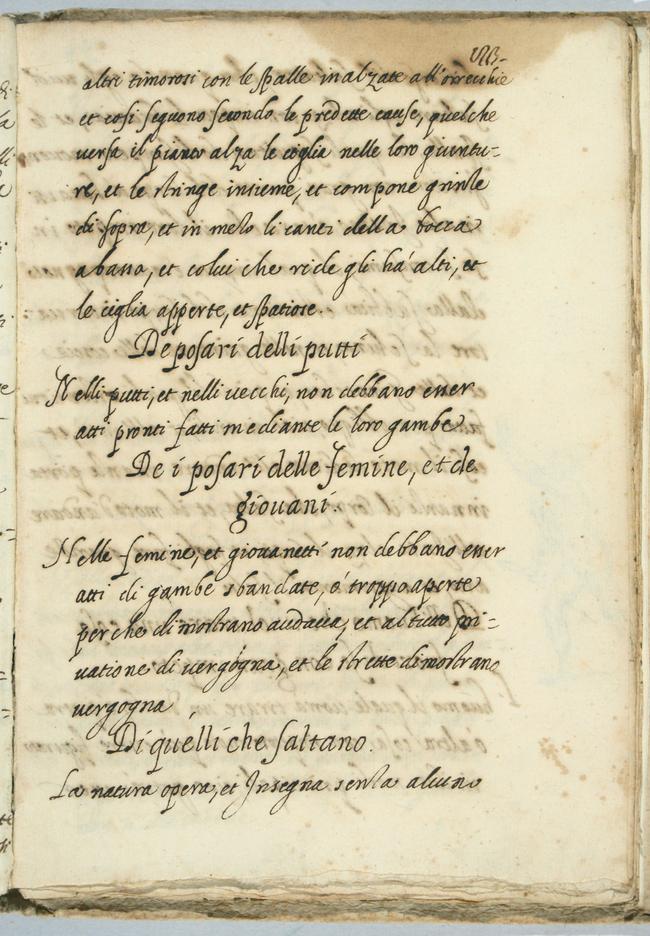 altri timorosi con le spalle inalzate all'orrecchie
et cosi seguono secondo le predette cause, quel che
versa il pianto alza le ciglia nelle loro giuntu=
re, et le stringe insieme, et compone grinze
di sopra, et in mezo li canti della bocca
abasso, et colui che ride gli ha' alti, et
le ciglia apperte, et spatiose.
De posari delli putti
Nelli putti, et nelli vecchi, non debbano esser
atti pronti fatti mediante le loro gambe
De i posari delle femine, et de
giovani.
Nelle femine, et giovanetti non debbano esser
atti di gambe sbandate, o' troppo aperte
perche dimostrano audacia, et al tutto pri=
vatione di vergogna, et le strette dimostrano
vergogna
Di quelli che saltano.
La natura opera, et Insegna senza alcuno